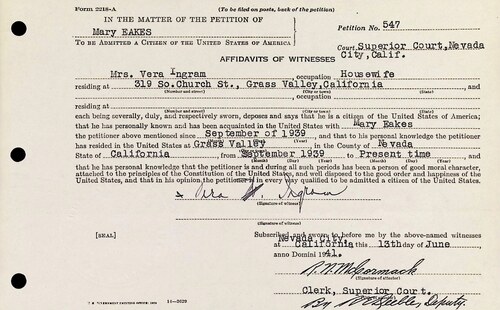 Form 2218-A
(To be filed on posts, back of the petition)
IN THE MATTER OF THE PETITION OF
Petition No. 547
Mary EAKES
To be Admitted a Citizen of the United States of America
Court Superior Court, Nevada
City, Calif.
AFFIDAVITS OF WITNESSES
Mrs. Vera Ingram, occupation Housewife
residing at 319 So.Church St., Grass Valley, California
(Number and street) (City or town) (State)
, occupation
residing at , and
(Number and street) (City or town) (State)
each being severally, duly, and respectively sworn, deposes and says that he is a citizen of the United States of America;
that he has personally known and has been acquainted in the United States with Mary Eakes
the petitioner above mentioned since September of 1939, and that to his personal knowledge the petitioner
(Month) (Year)
has resided in the United States at Grass Valley in the County of Nevada
State of California, from September 1939 to Present time, and
(Month) (Day) (Year) (Month) (Day) (Year)
that he has personal knowledge that the petitioner is and during all such periods has been a person of good moral character,
attached to the principles of the Constitution of the United States, and well disposed to the good order and happiness of the
United States, and that in his opinion the petitioner is in every way qualified to be admitted a citizen of the United States.
x Vera W. Ingram
(Signature of witness)
(Signature of witness)
[SEAL]
Subscribed and sworn to before me by the above-named witnesses
at Nevada City, California this 13th day of June,
anno Domini 1941.
R. N. McCormack
Clerk, Superior Court.
By Deputy.
U. S. GOVERNMENT PRINTING OFFICE